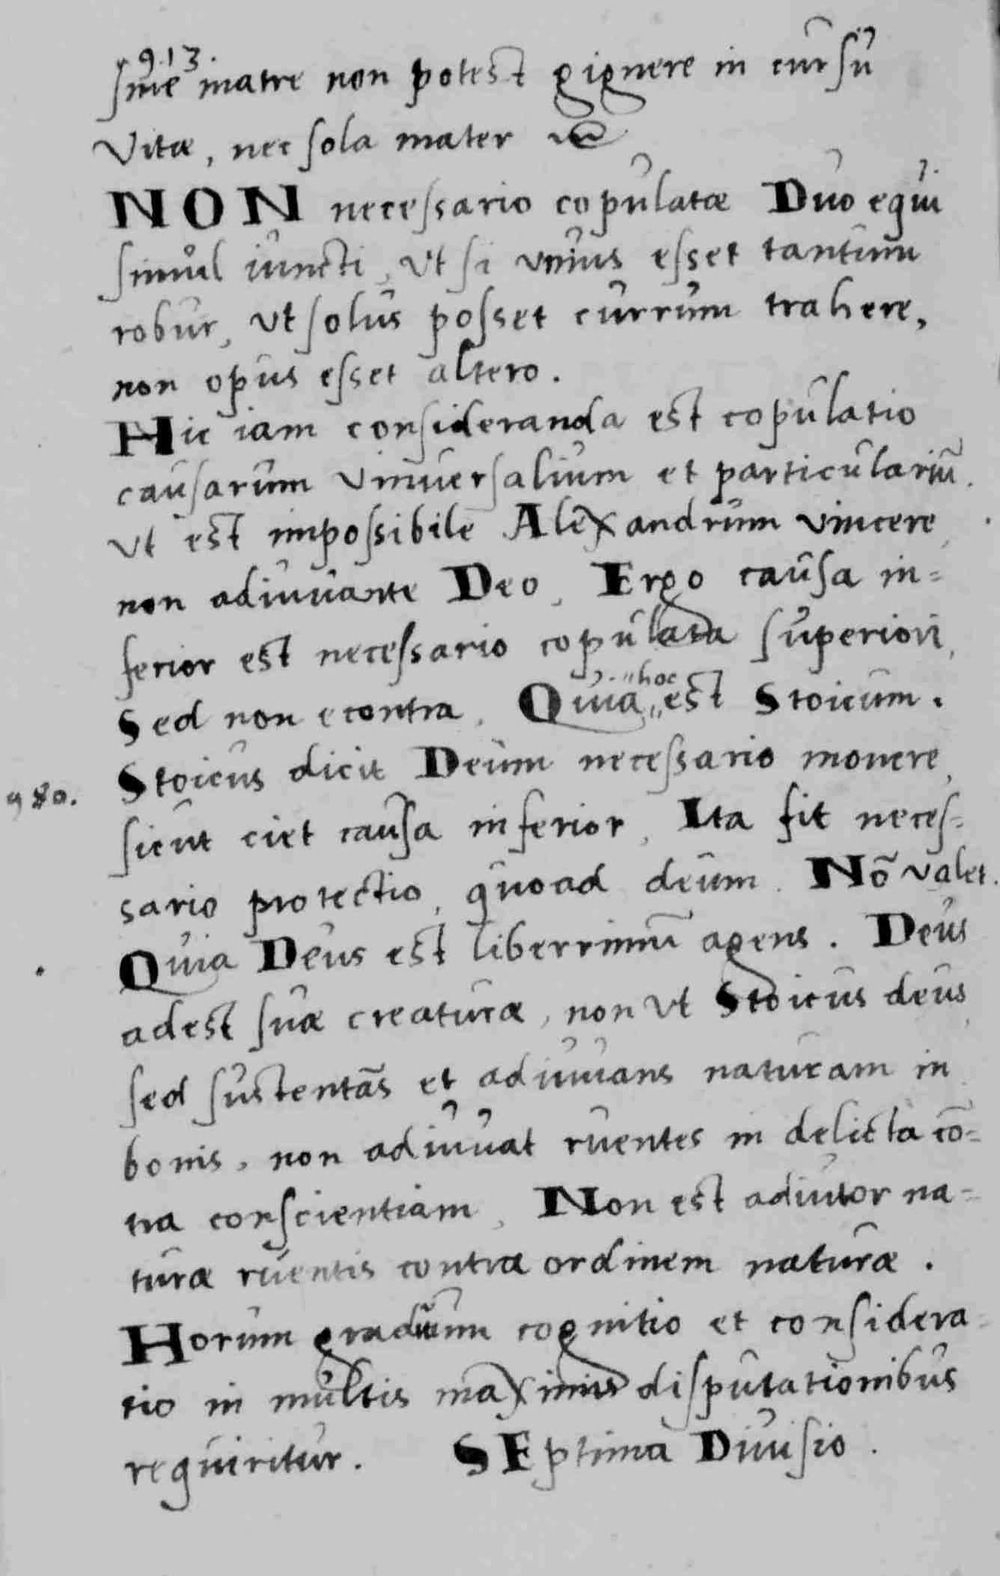 913.
sine matre non potest gignere in cursu
Vitæ, nec sola mater
NON necessario copulatæ Duo equi
simul iuncti, Vt si vnius esset tantum
robur, Vt solus posset currum trahere,
non opus esset altero.
Hic iam consideranda est copulatio
causarum vniuersalium et particulariū.
Vt est impossibile Alexandrum vincere
non adiuuante Deo, Ergo causa in=
ferior est necessario copulata superiori,
Sed non econtra, Quia "hoc" est Stoicum.
Stoicus dicit Deum necessario mouere,
980.
sicut ciet causa inferior, Ita fit neces=
sario protectio, quoad deum. Nō valet.
Quia Deus est liberrimū agens. Deus
adest suæ creaturæ, non Vt Stoicus deus,
sed sustentās et adiuuans naturam in
bonis, non adiuuat ruentes in delicta cō=
tra conscientiam, Non est adiutor na=
turæ ruentis contra ordinem naturæ.
Horum graduum cognitio et considera=
tio in multis maximis disputationibus
requiritur. SEptima Diuisio.